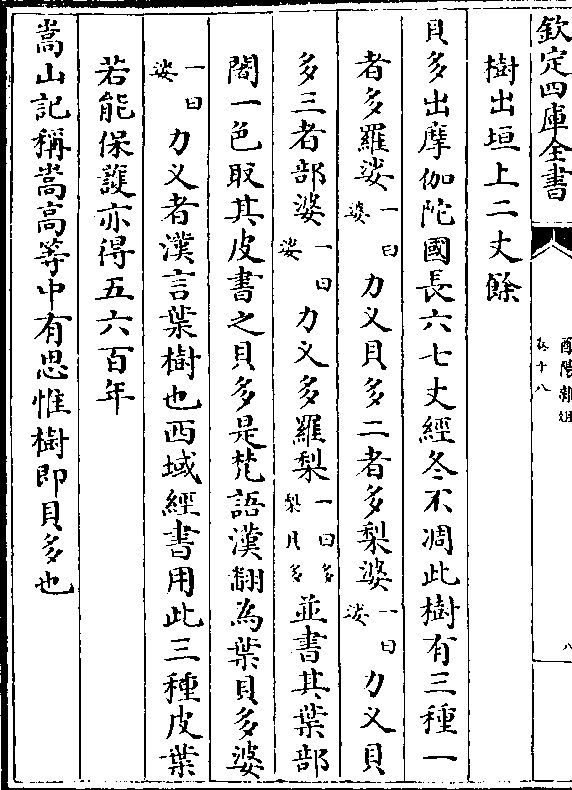 欽定四庫全書
酉陽雜俎
卷十八
八
樹出垣上二丈餘
貝多出摩伽陀國長六七丈經冬不凋此樹有三種一
者多羅婆一曰婆力义貝多二者多梨婆一曰婆力义貝
多三者部婆一曰婆力义多羅梨一曰多梨貝多並書其葉部
闍一色取其皮書之貝多是梵語漢翻為葉貝多婆
一曰婆力义者漢言葉樹也西域經書用此三種皮葉
若能保護亦得五六百年
嵩山記稱嵩高等中有思惟樹即貝多也